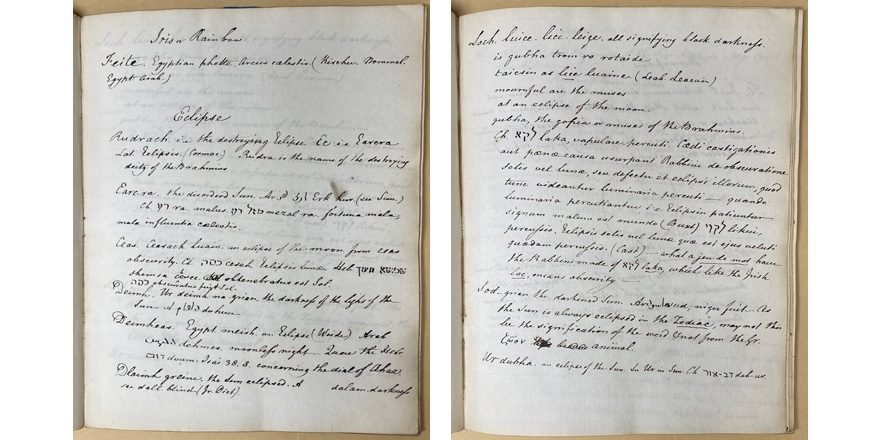 Iris or Rainbow
Feite. Egyptian phette. Arcus cœlestis (Kircher. Nomencl.
Egypt. Arab.)
Eclipse
Rudrach. i.e. the destroying Eclipse Ec is Earcra
Lat. Eclipsis. (Cormac) Rudra is the name of the destroying
deity of the Brahmins
Earcra. the disordered Sun. Ar. Erk hur. (see Sun)
Ch רע ra malus מזל רע mezal ra. fortuna mala,
mala influentia cælestis.
Ceas. Ceasach Luain. an eclipse of the moon from ceas
obscurity. Ch. כהה ceseh. Eclipses lunæ Heb.
shemsa obtenebratus est Sol.
Deimh. Ur deimh na grian. the darkness of the light of the
Sun. A dehum.
Deimheas. Egypt meish. an Eclipse (Woide) Arab
dehmea. moonless night Quere the Heb.
דום doum. Isai 38. 8. concerning the dial of Ahaz.
Dlaimh greine. the Sun eclipsed. A dalam. darkness
see dall. blind. (Ir. Dict).
Loch. luice. lice. leige. all signifying black. darkness.
is gubha trom ro rotaide
taicsin as lice luaine (Leab. Leacain)
mournful are the muses
at an eclipse of the moon.
gubha, the gopia or muses of the Brahmins.
Ch לקא laka, vapulare percuti. Cædi castigationis
aut pænæ causa usurpant Rabbini de obscuratione
solis vel lunæ, seu defectu et eclipsi illorum, quod
tunc videantur luminaria percuti — quando
luminaria percutiantur i.e. Eclipsin patiuntur
signum malum est mundo (Buxt) לקוי likui,
percussio. Eclipsis solis vel lunæ quæ est ejus veluti
quædam percussio. (Cast) — what a jeu de mot have
the Rabbins made of לקא laka, which like the Irish
loc. means obscurity —
Sod-grian the darkened Sun. Ar. sud, niger fuit — As
the Sun is always eclipsed in the Zodiac, may not this
be the signification of the word & not from the Gr.
ζωον animal.
Ur dubha. an eclipse of the Sun. See Ur in Sun. Ch דב-אור dab-ur.